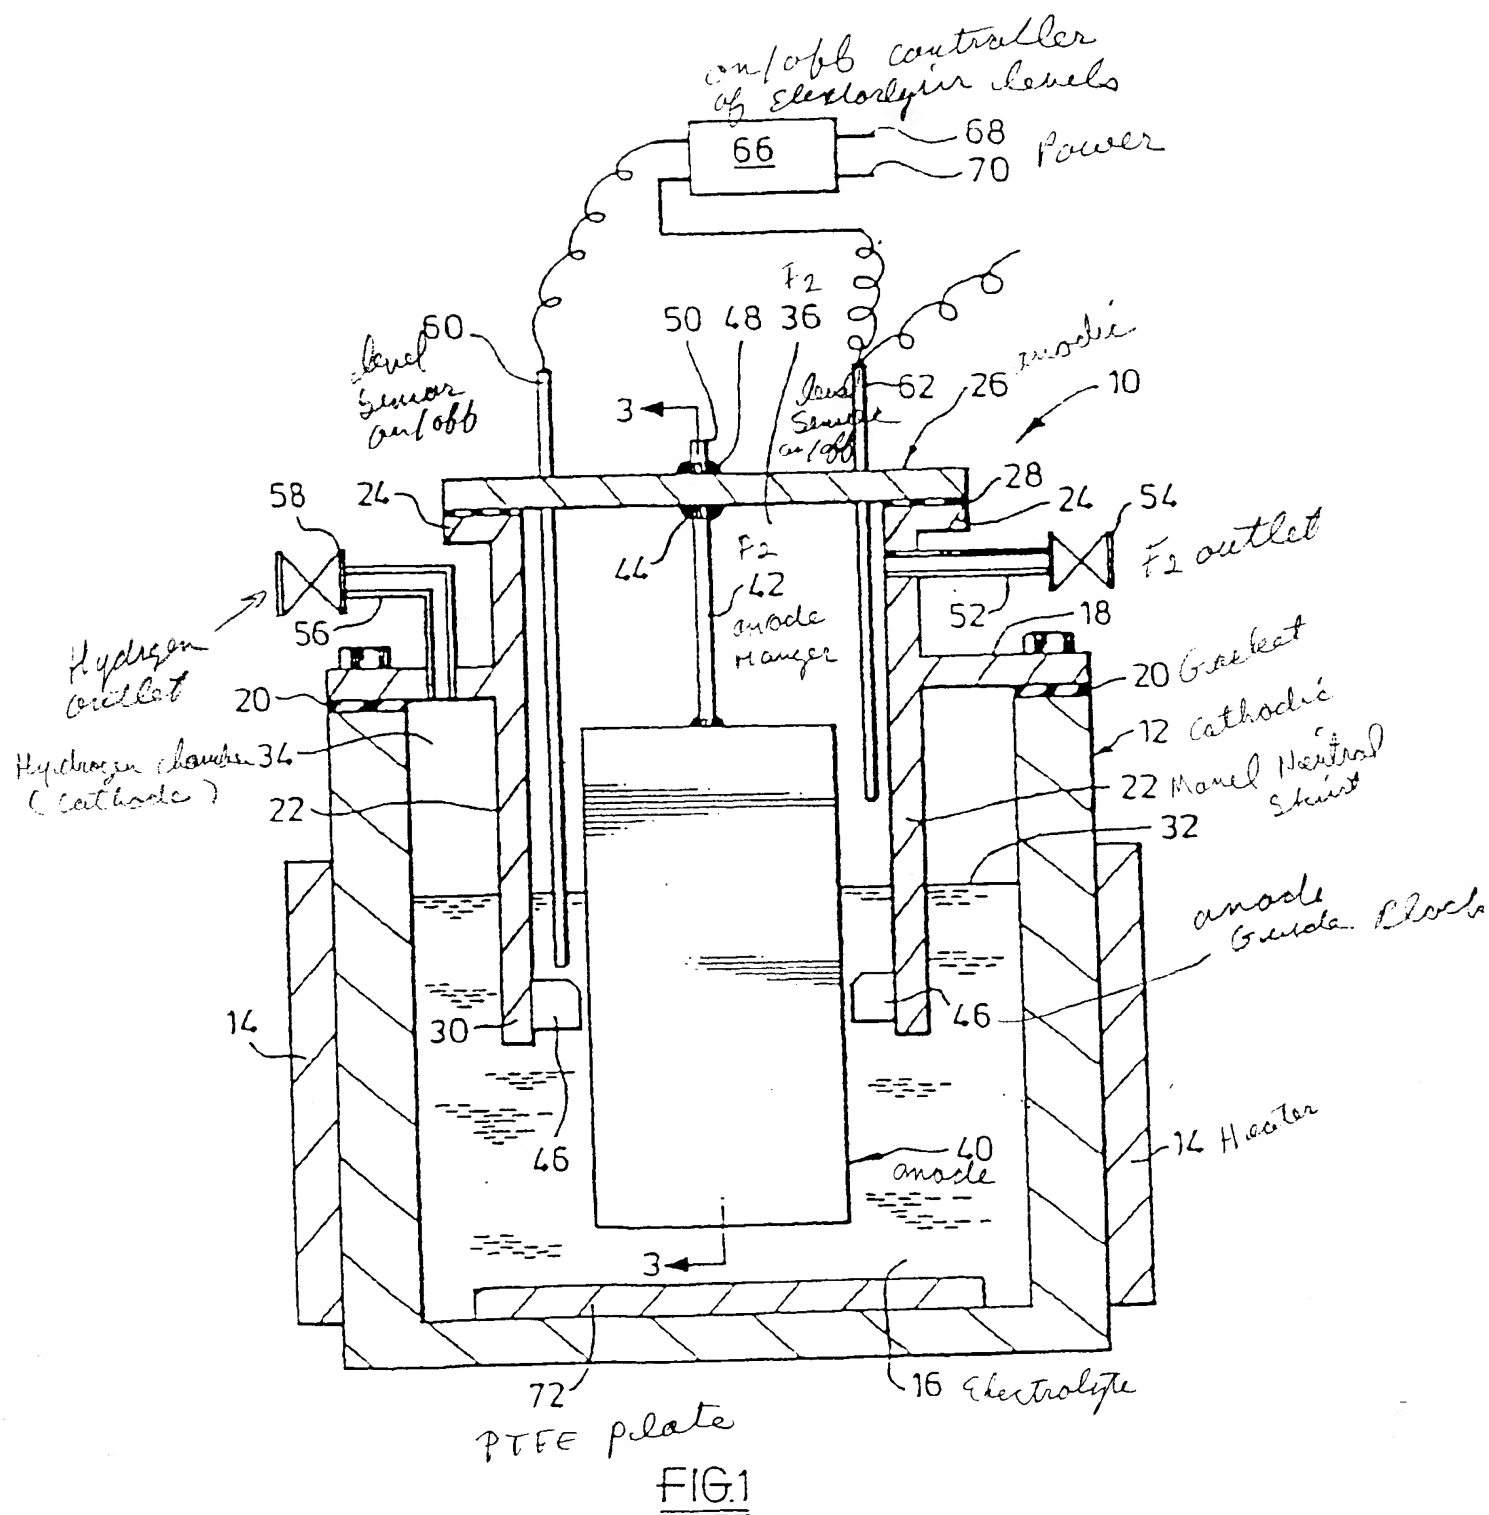 on/off controller
of Electorlyin levels
66
68
70 Power
F2
60
50 48 36
level
sensor
on/off
3
level
sensor
on/off
62
26 anodic
10
58
24
28
24
54
44
F2
42
anode
Hanger
F2 outlet
56
52
18
Hydrogen
outlet
20
20 Gasket
12 Cathodic
Hydrogen chamber 34
(Cathode)
22
22 Monel Neutral
Skirt
32
anode
Guide Block
14
30
46
46
40
anode
14 Heater
3
72
16 Electrolyte
PTFE plate
FIG.1